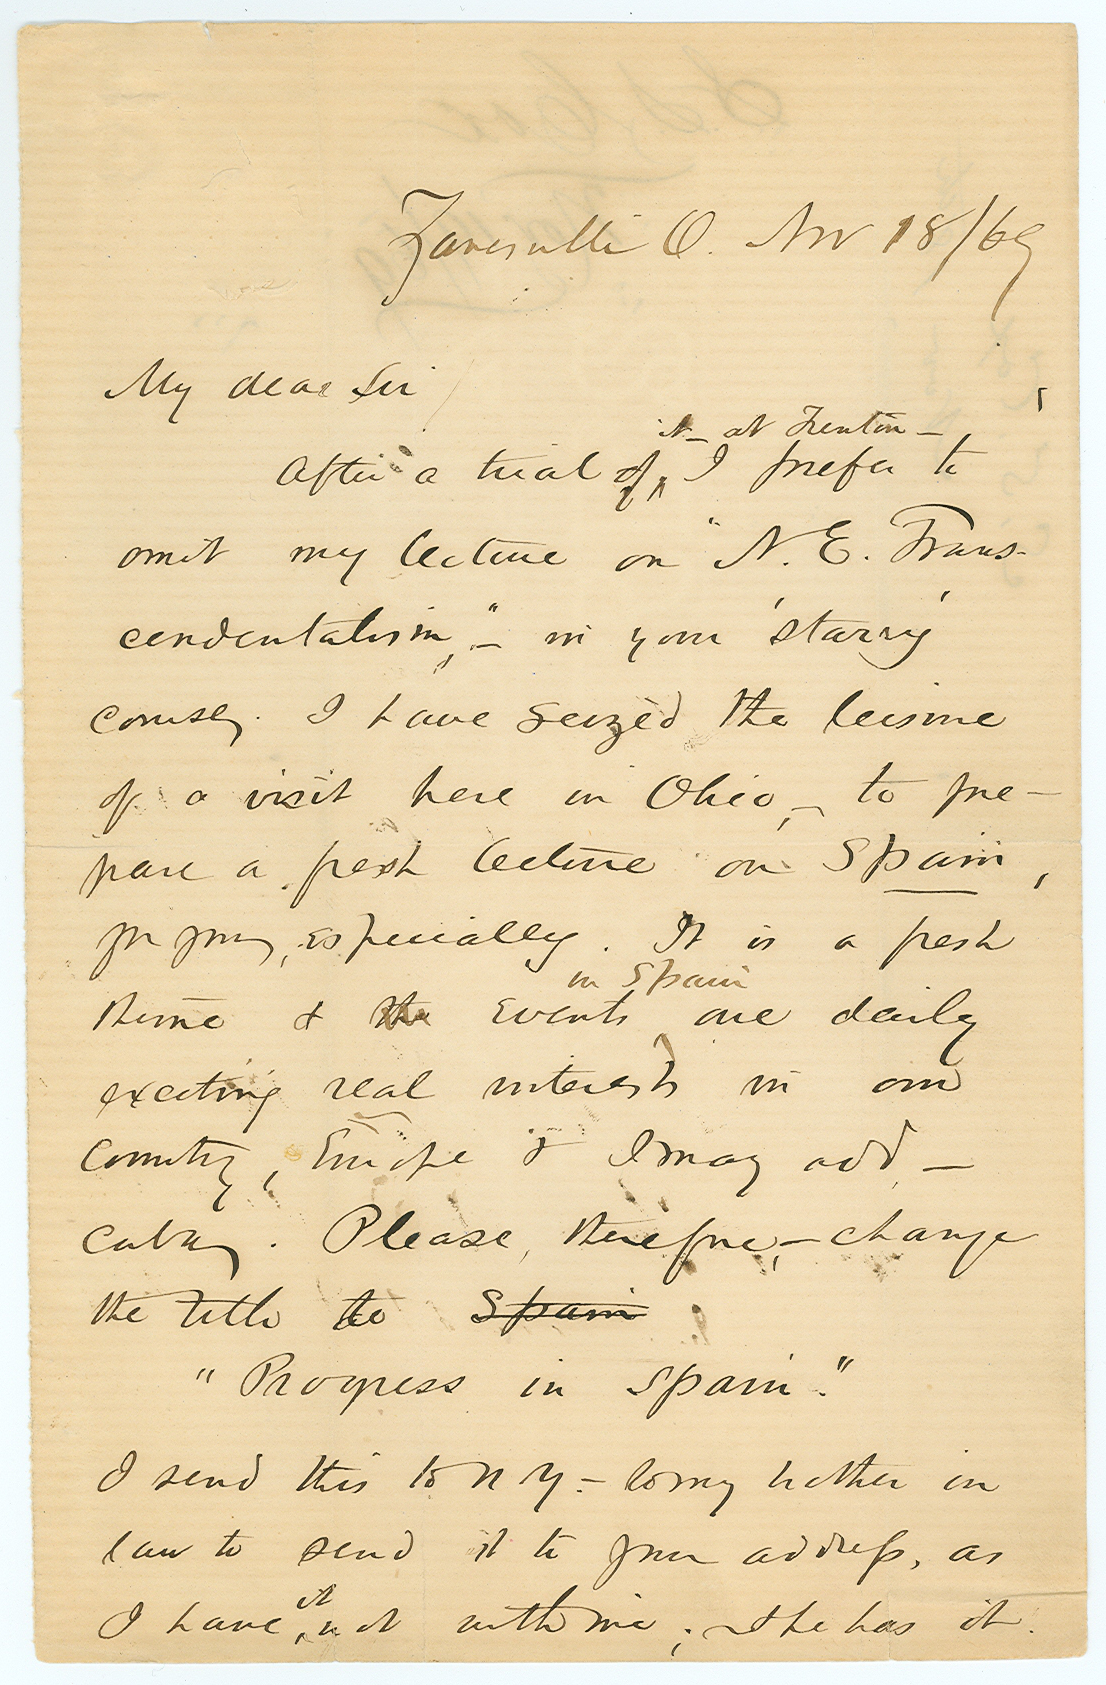 Zanesville O. Nov 18/69
My dear Sir
it - at Trenton -
After a trial of ^ I prefer to
omit my lecture on "N. E. Trans-
cendentalism," - in your 'starry'
course. I have seized the leisure
of a visit here in Ohio, - to pre-
pare a fresh lecture on Spain,
for you, especially. It is a fresh
in Spain
theme & the events are daily
exciting real interests in our
Country, Europe & I may add, -
Cuba. Please, therefore, - change
the title to Spain
"Progress in Spain."
I send this to N Y - to my brother in
law to send it to your address, as
it
I have ^ not with me; - & he has it.